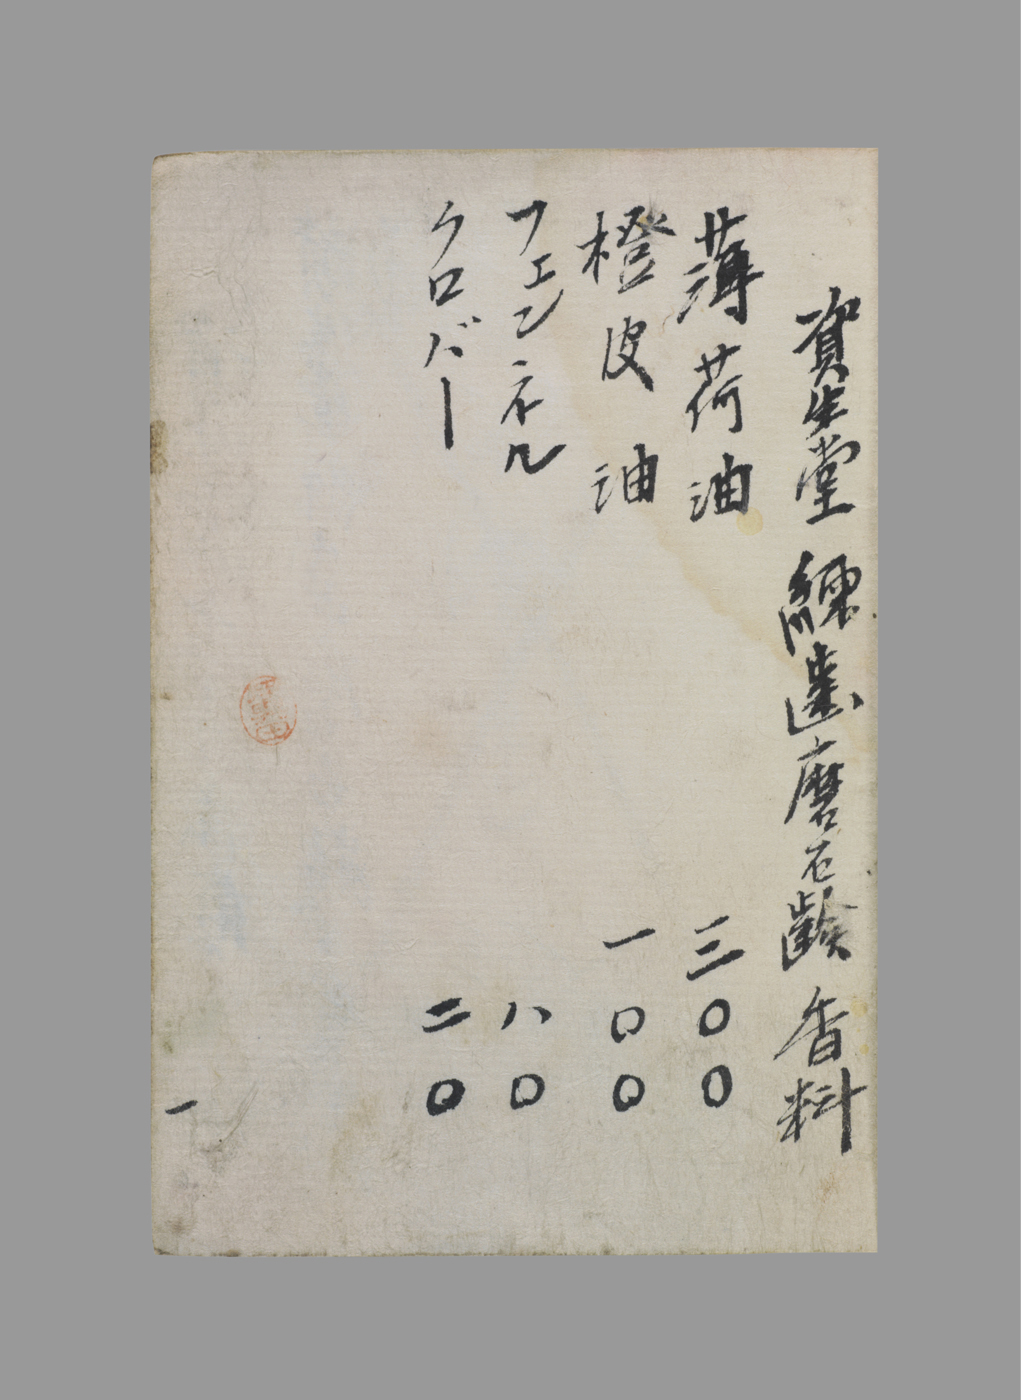 資生堂 練歯磨石鹸 香料
薄荷油 三〇〇
橙皮油 一〇〇
フェンネル 八〇
クロバー 二〇
一